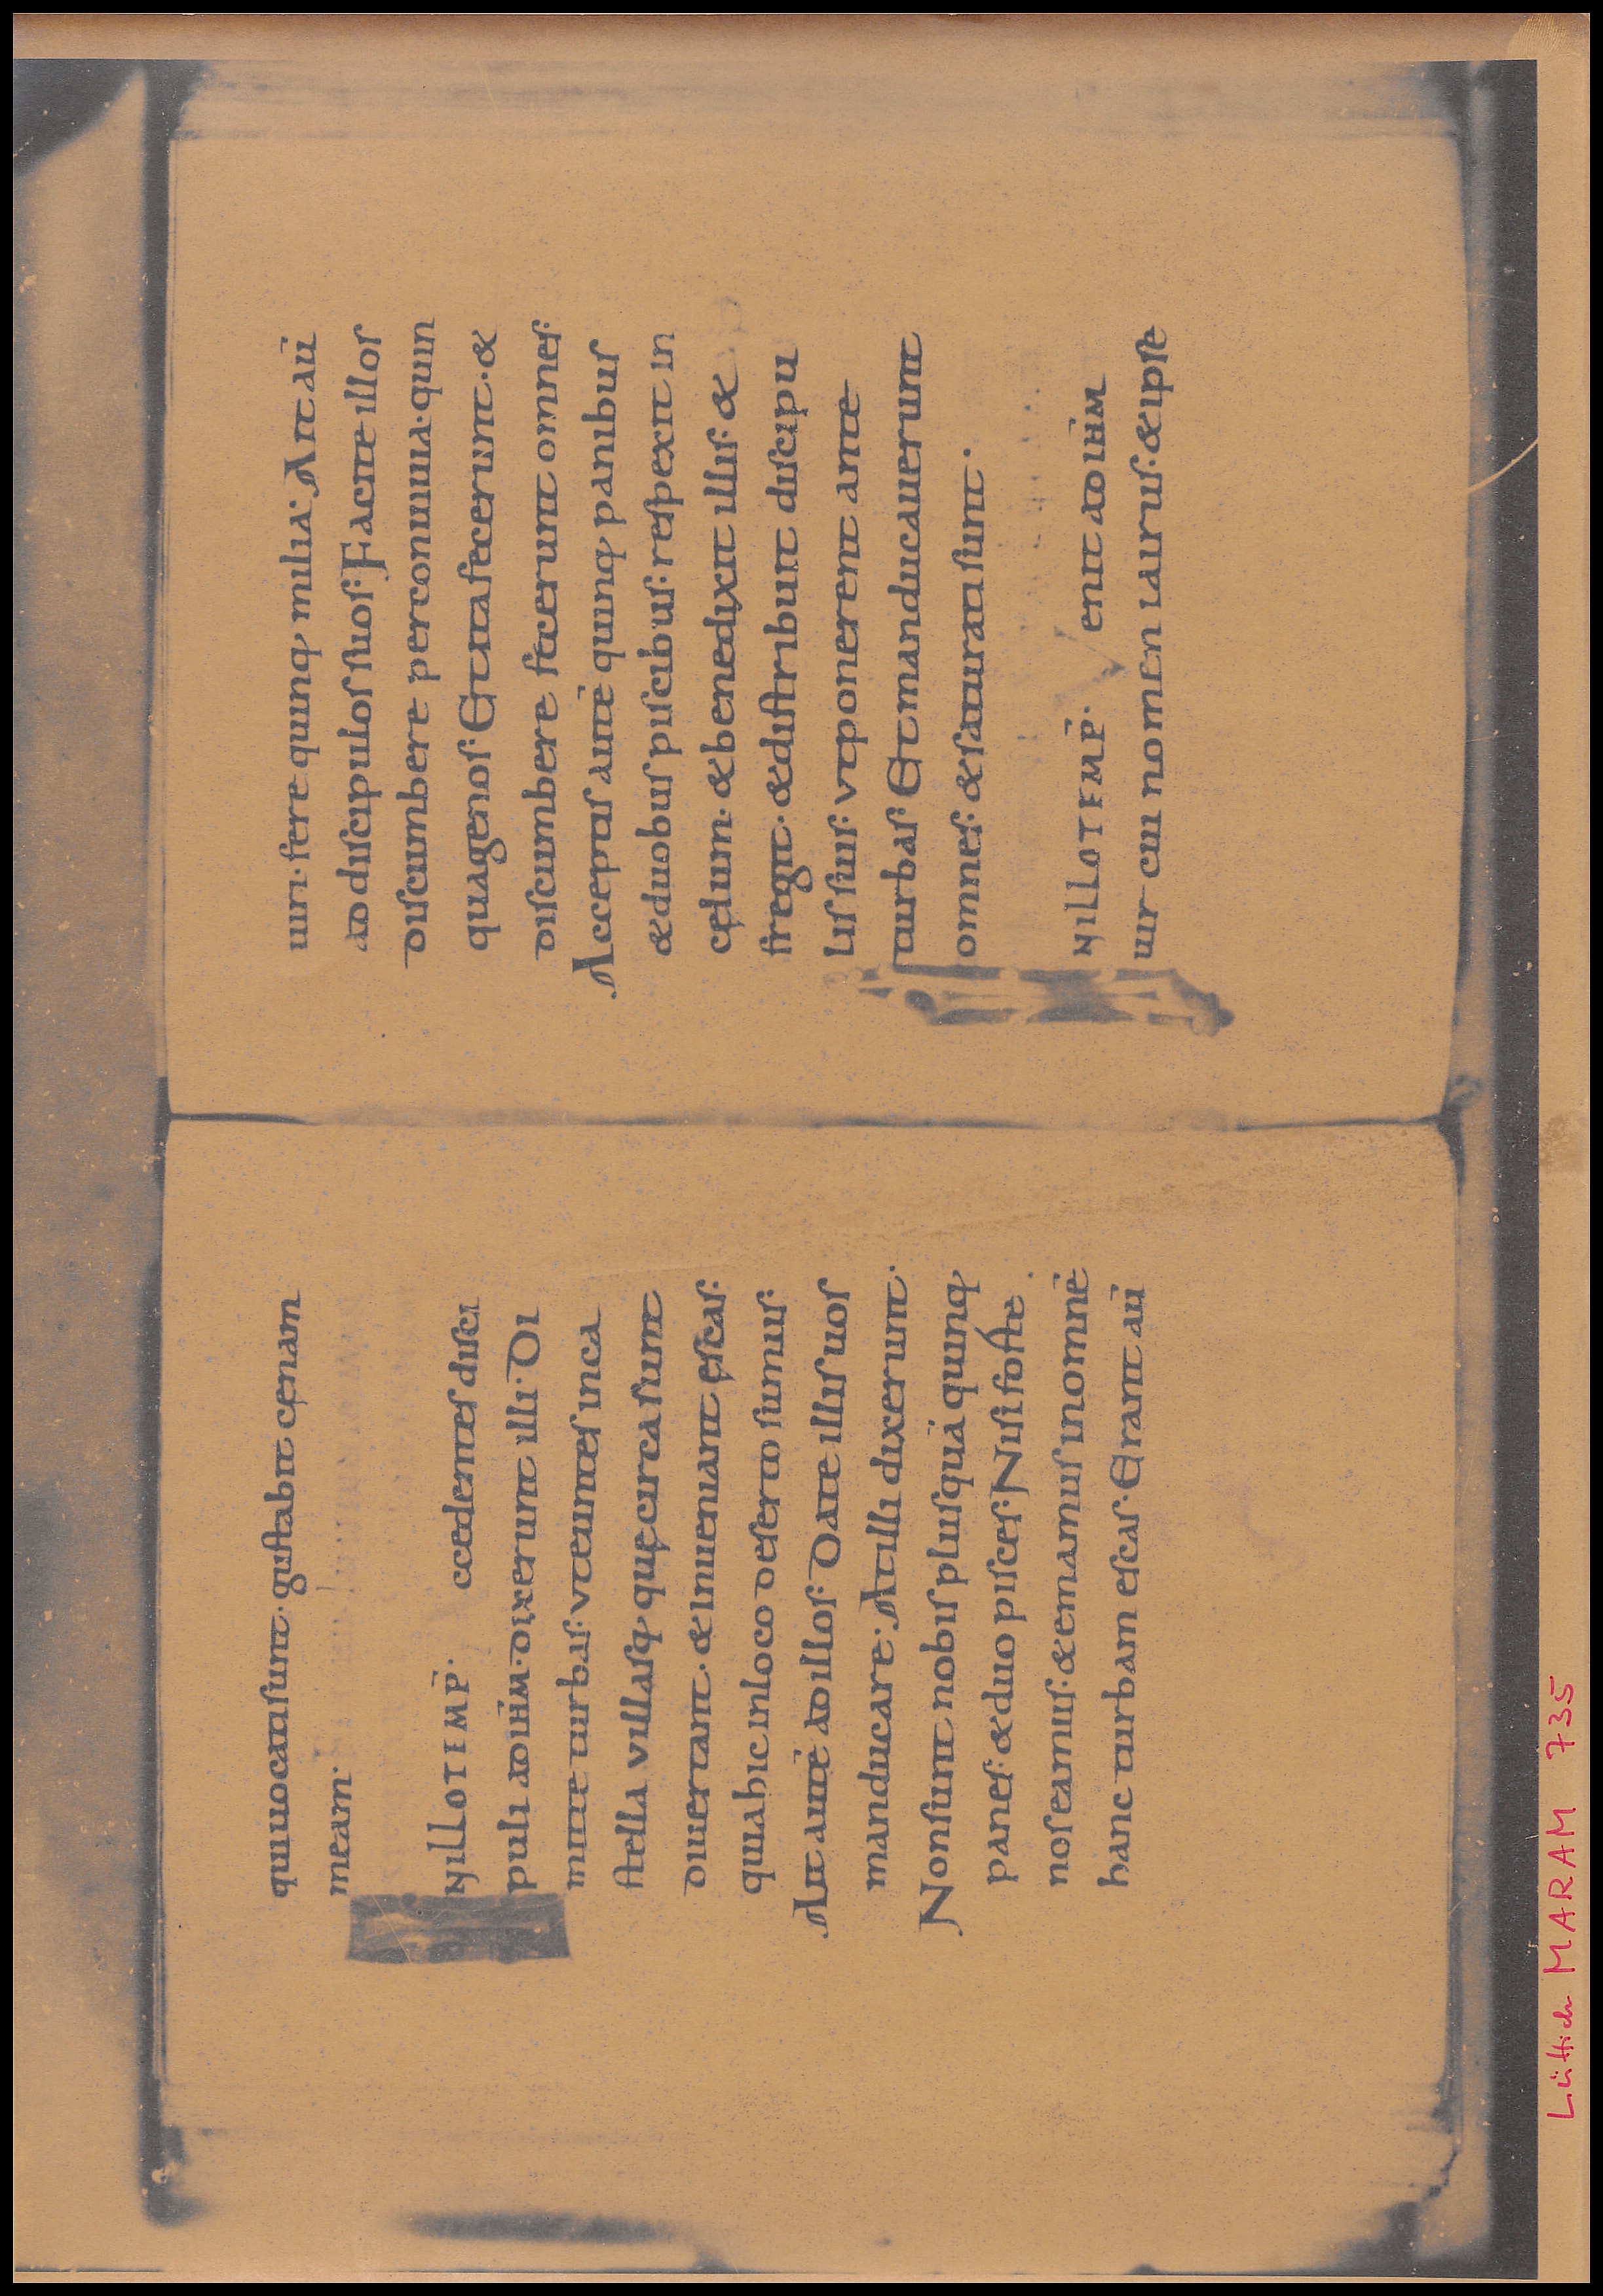 qui uocati sunt · gustabit cęnam
meam ·
IN ILLO T EMP̄ · ccedentes disci
puli ad ihm̄ · dixerunt illi · Di
mitte turbas · ut euntes in ca
stella villasq; quę circa sunt
diuertant · & inueniant ęscas ·
quia hic in loco deserto sumus ·
Ait autē ad illos · Date illis uos
manducare · At illi dixerunt ·
Non sunt nobis plus quā quinq;
panes · & duo pisces · Nisi forte
nos eamus · & emamus in omnē
hanc turbam escas · Erant aū
uiri · fere quinq; milia · Ait aū
ad discipulos suos · Facite illos
discumbere per conuiuia · quin
quagenos · Et ita fecerunt · &
discumbere fecerunt omnes ·
Acceptis autē quinq; panibus
& duobus piscibus · respexit in
cęlum · & benedixit illis · &
fregit · & distribuit discipu
lis suis · ut ponerent ante
turbas · Et manducauerunt
omnes · & saturati sunt ·
IN ILLO T EMP̄ · enit ad ihm̄
uir cui nomen iairus · & ipse
Lüttich MARAM 735